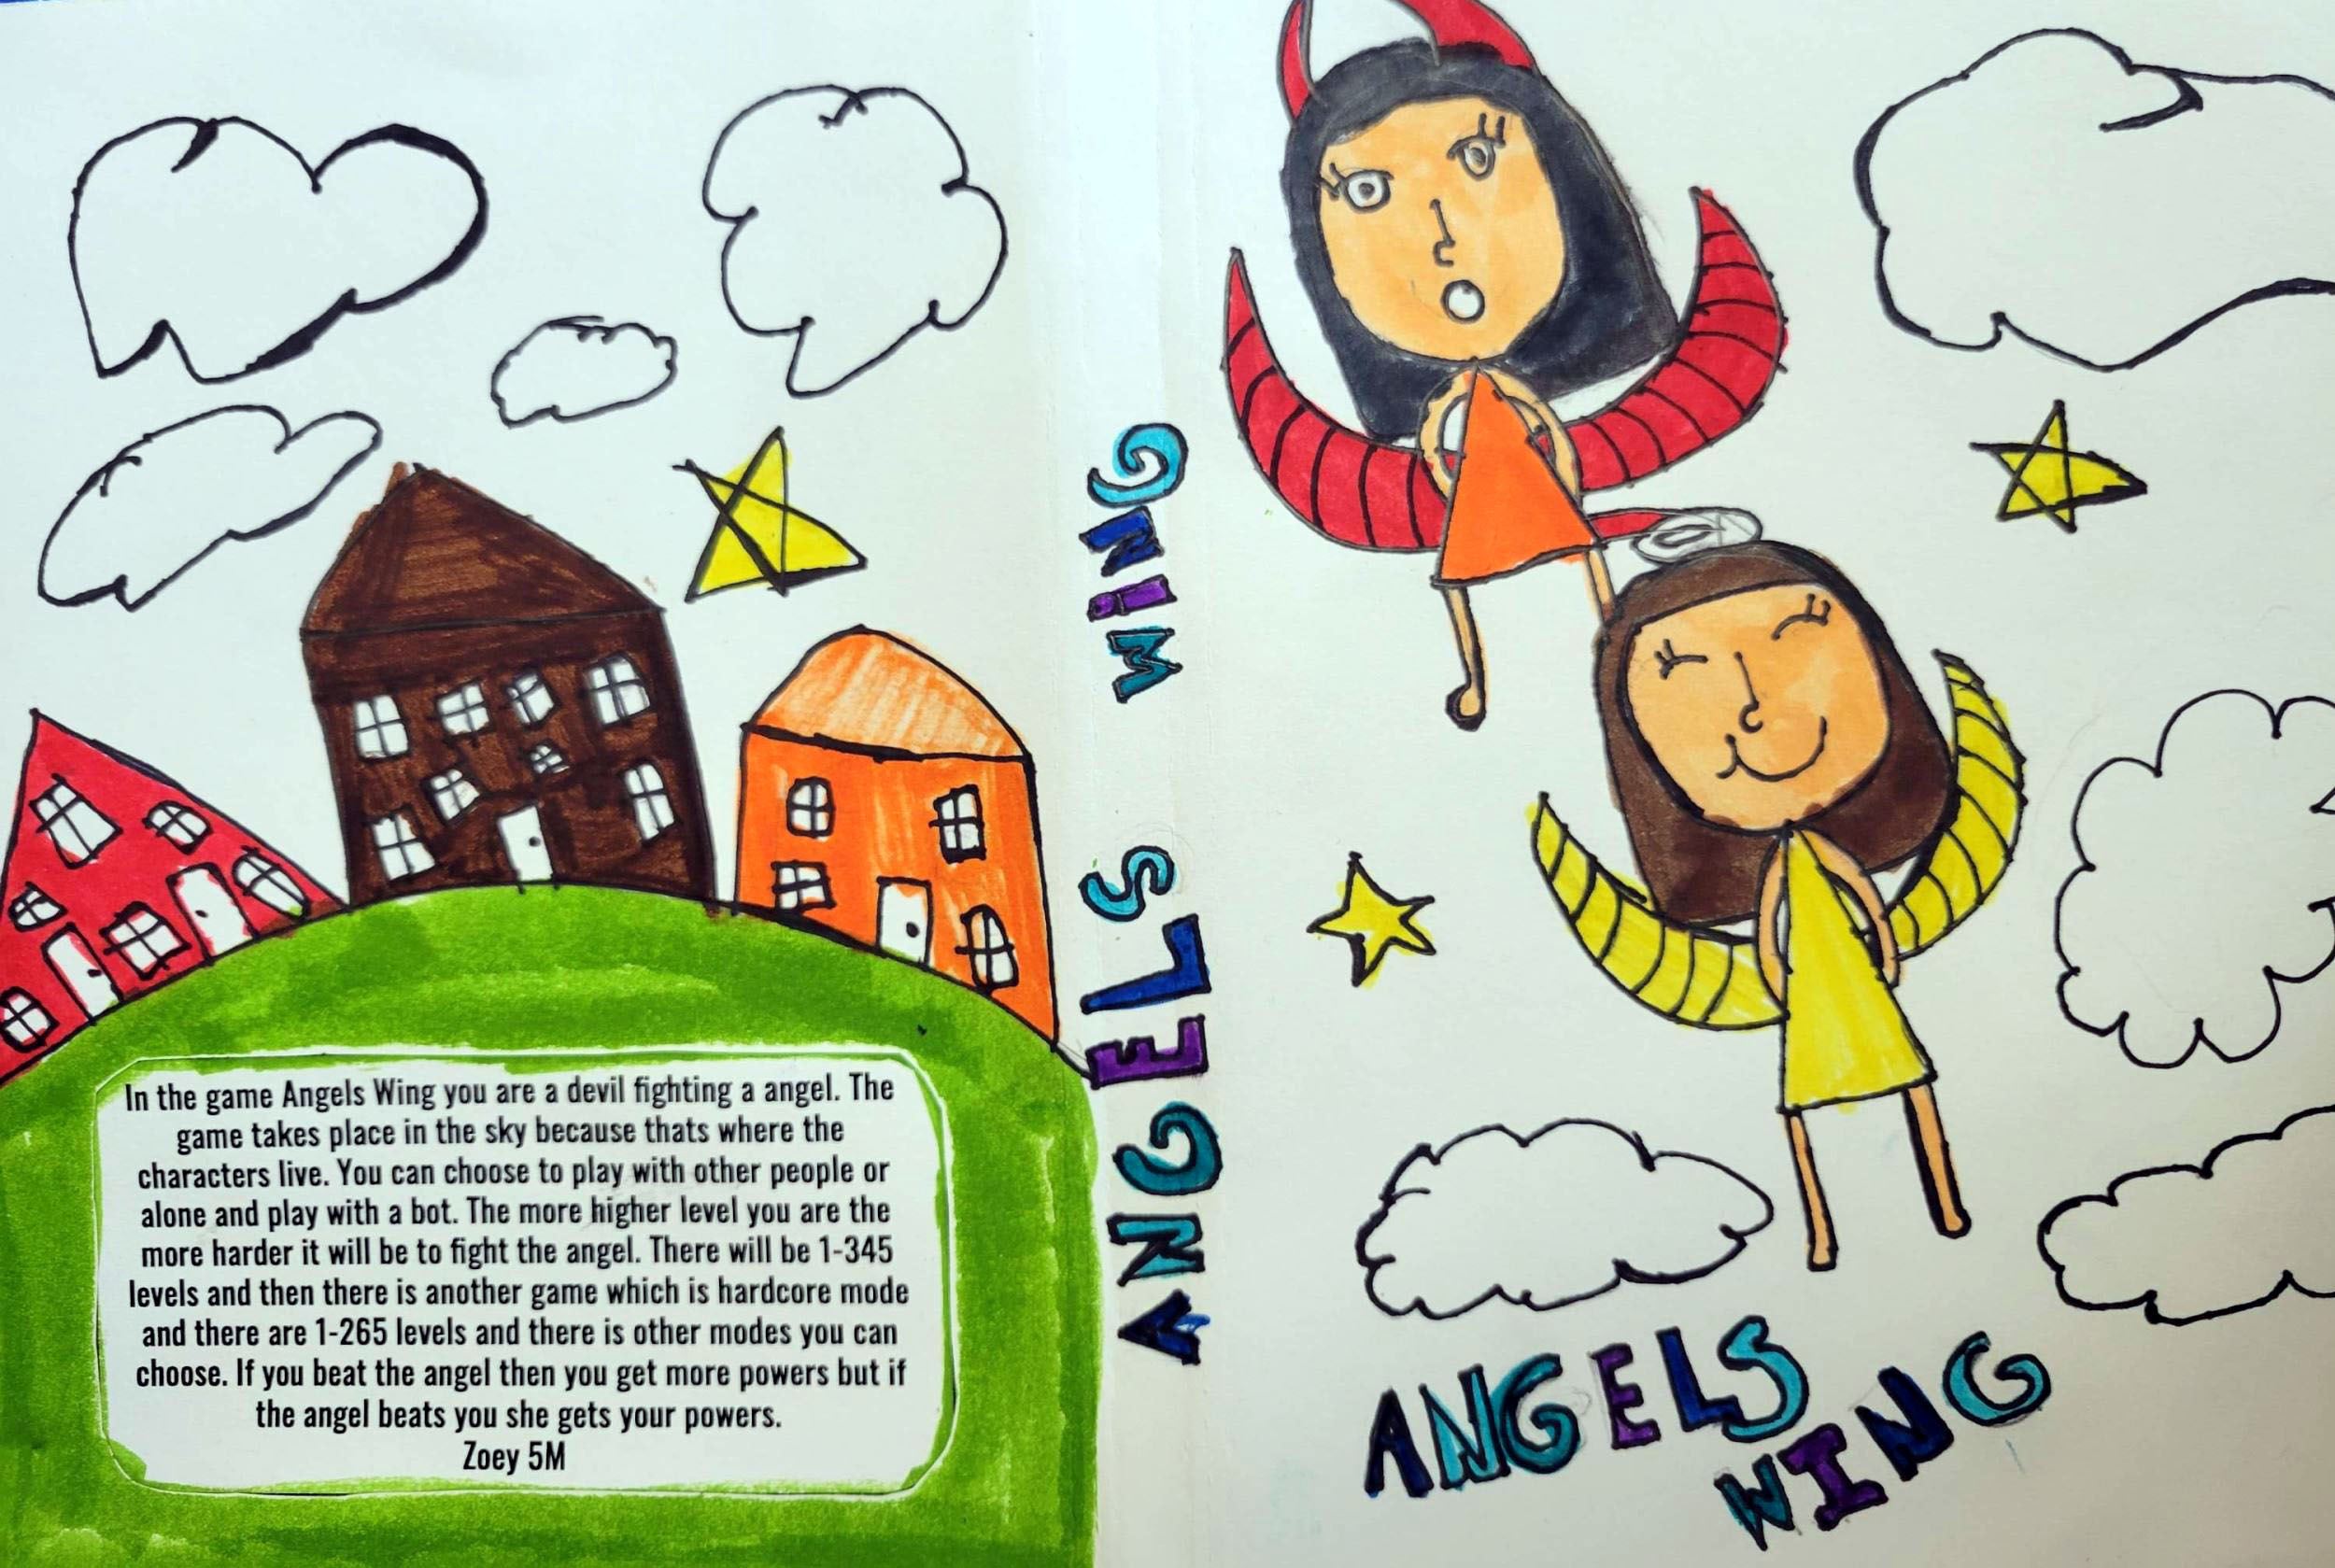 In the game Angels Wing you are a devil fighting a angel. The
game takes place in the sky because thats where the
characters live. You can choose to play with other people or
alone and play with a bot. The more higher level you are the
more harder it will be to fight the angel. There will be 1-345
levels and then there is another game which is hardcore mode
and there are 1-265 levels and there is other modes you can
choose. If you beat the angel then you get more powers but if
the angel beats you she gets your powers.
Zoey 5M
ANGELS WING
ANGELS
WING